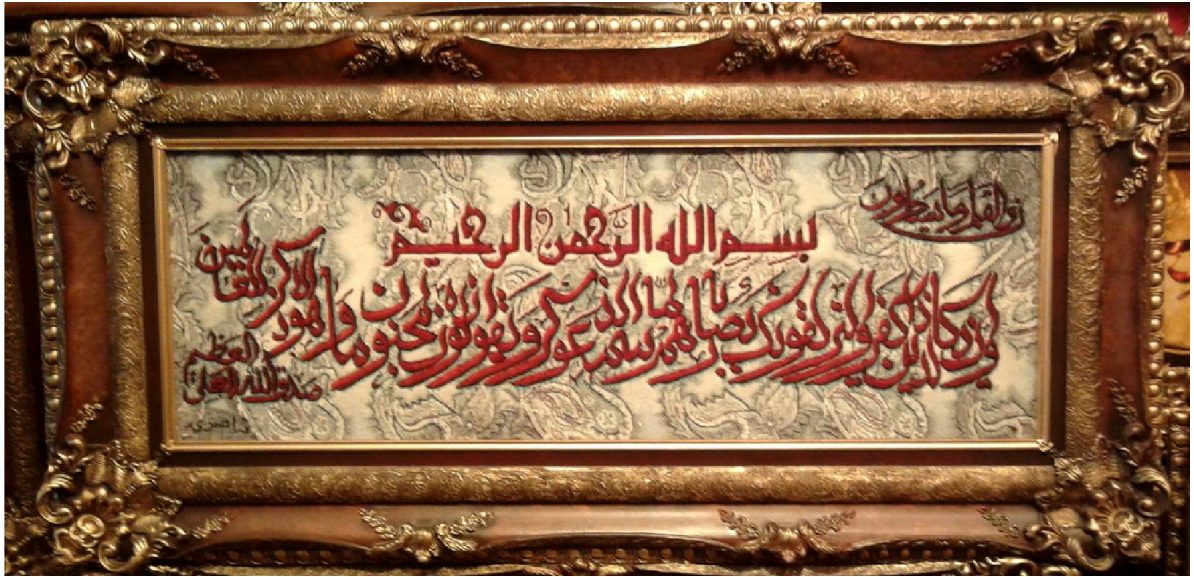 ن والقلم وما یسطرون
بسم الله الرحمن الرحیم
وإن یکاد الذین کفروا لیزلقونک بأبصارهم لما سمعوا الذکر ویقولون إنه لمجنون وما هو إلا ذکر للعالمین
صدق الله العلی العظیم
ناصری